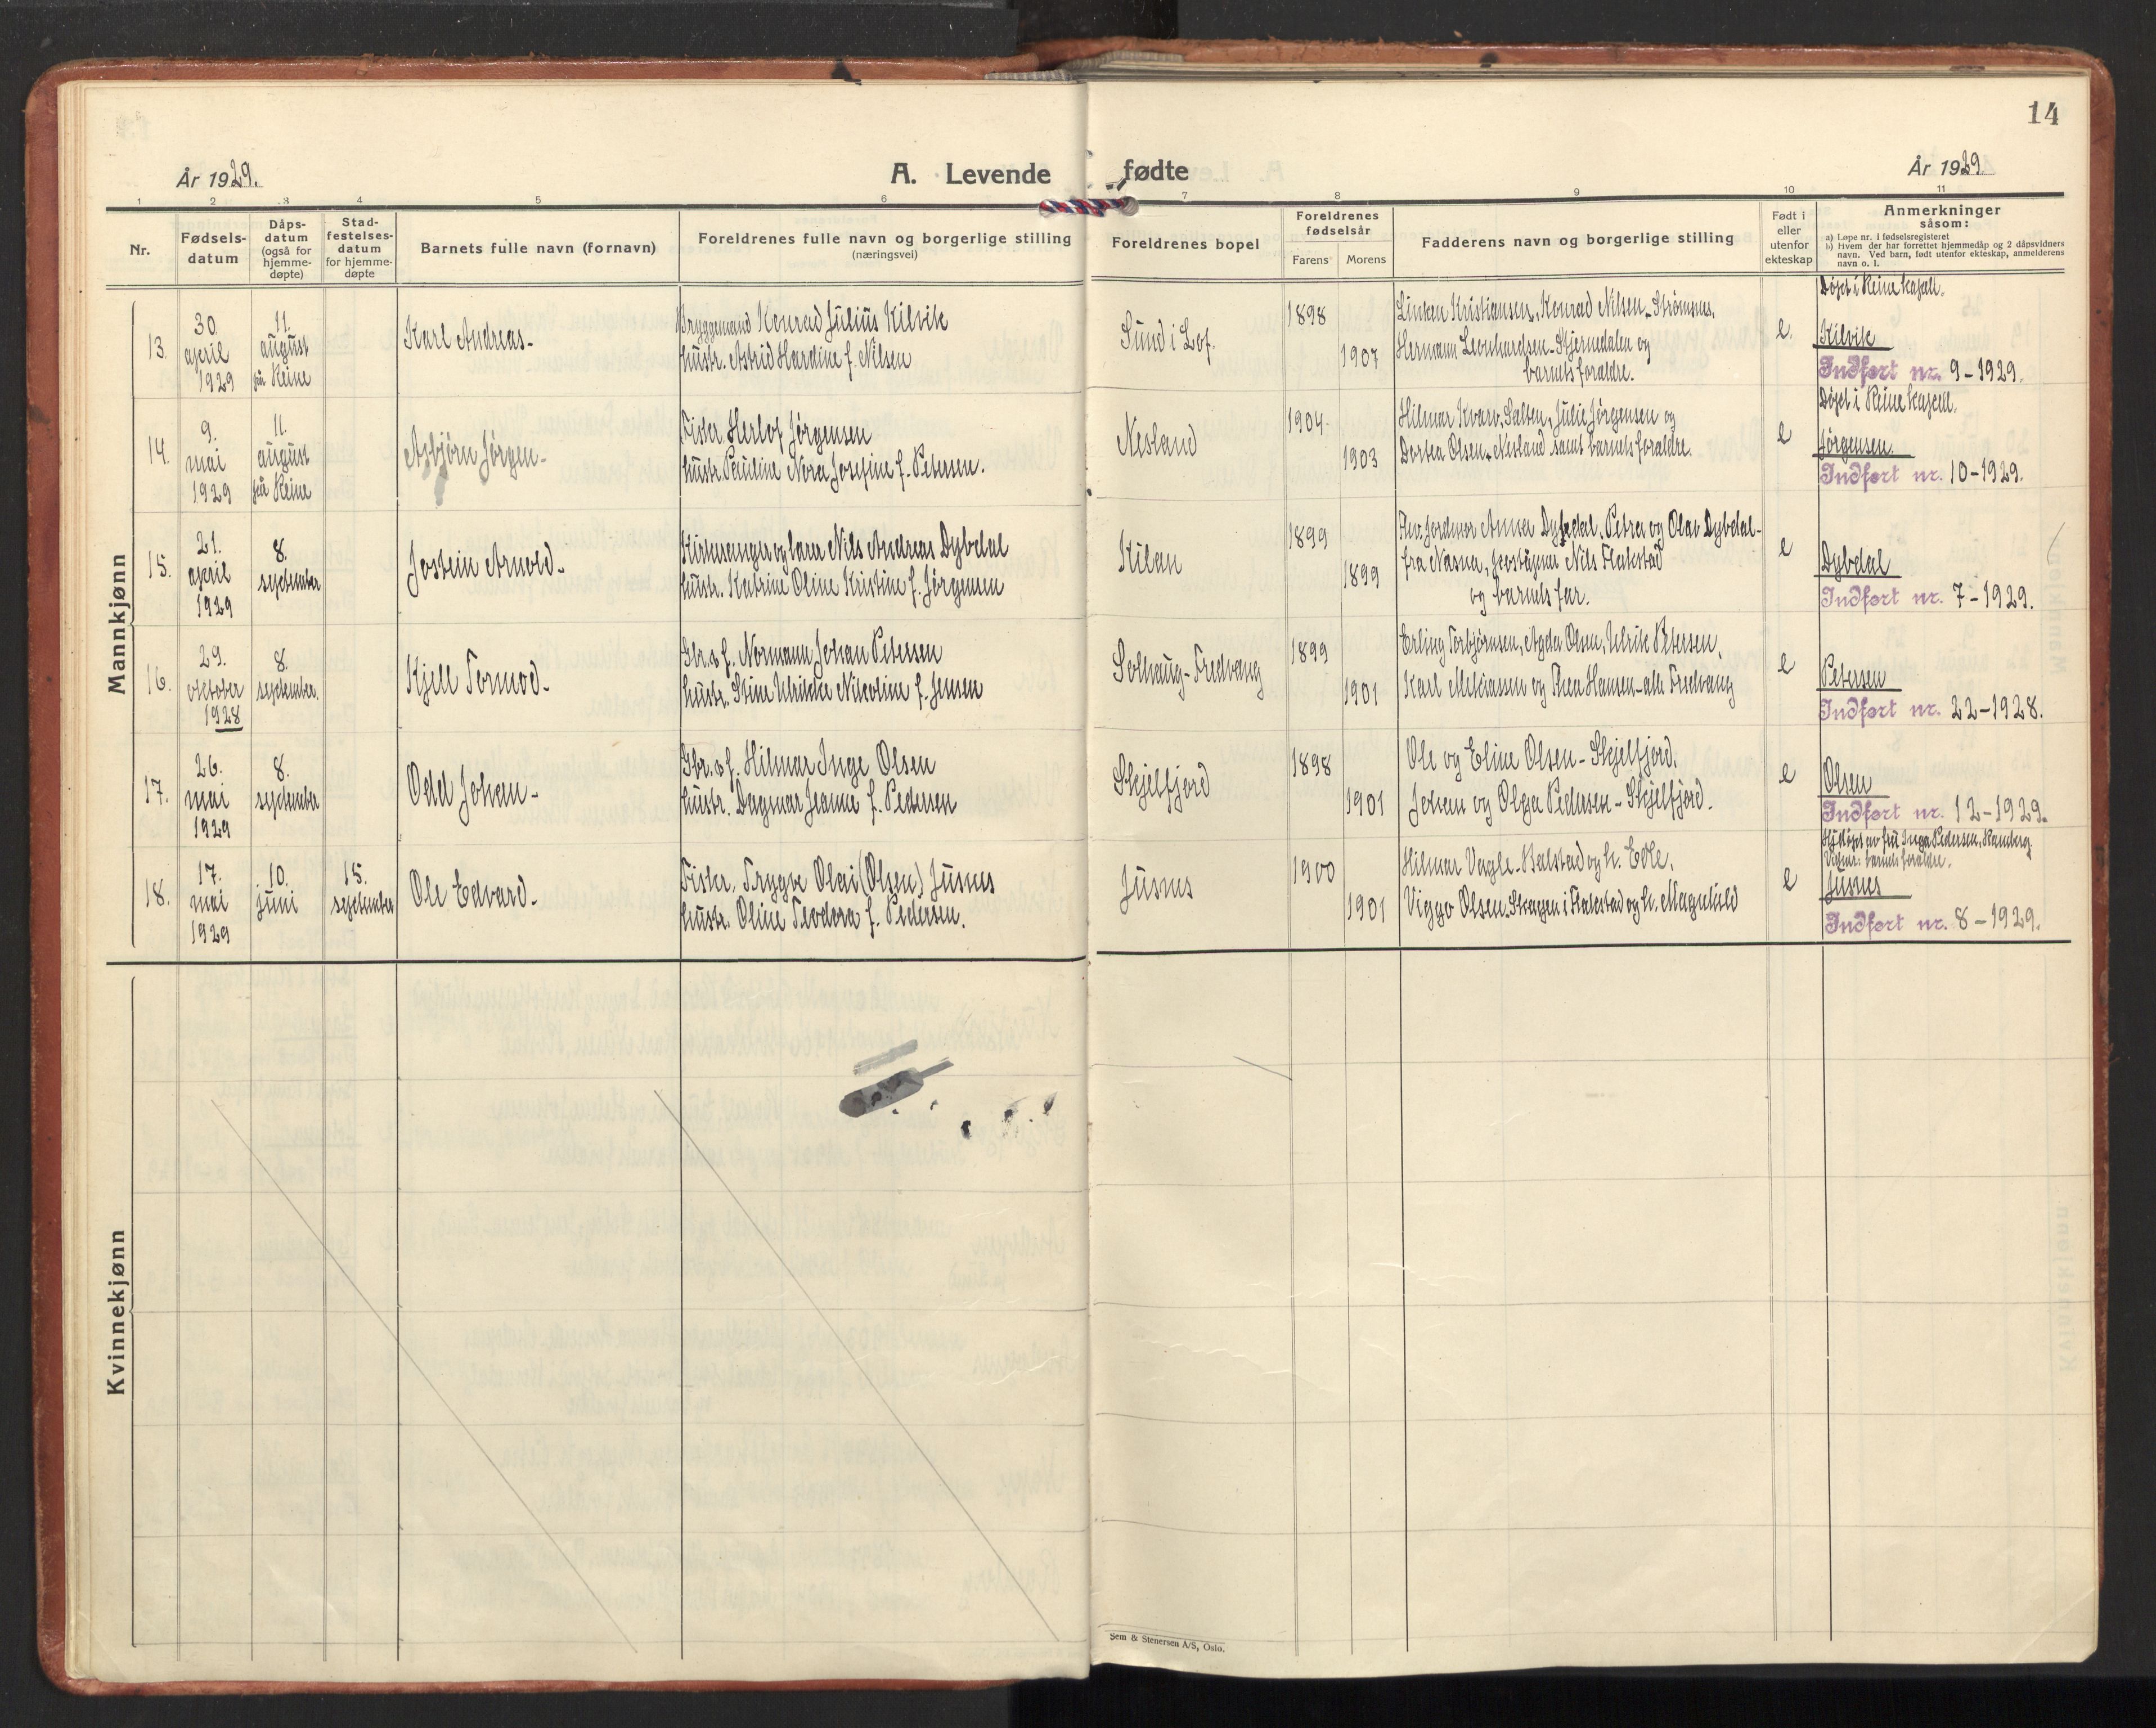 14
År 1929.
A. Levende fødte
År 1929.
1 2 3 4 5 6 7 8 9 10 11
Nr.
Fødsels-
datum
Dåps-
datum
(også for
hjemme-
døpte)
Stad-
festelses-
datum
for hjemme-
døpte
Barnets fulle navn (fornavn)
Foreldrenes fulle navn og borgerlige stilling
(næringsvei)
Foreldrenes bopel
Foreldrenes
fødselsår
Farens
Morens
Fadderens navn og borgerlige stilling
Født i
eller
utenfor
ekteskap
Anmerkninger
såsom:
a) Løpe nr. i fødselsregisteret
b) Hvem der har forrettet hjemmedåp og 2 dåpsvidners
navn. Ved barn, født utenfor ekteskap, anmelderens
navn o. l.
Mannkjønn
13.
30.
april
1929
11.
august
på Reine
Karl Andreas-
Bryggemand Konrad Julius Kilvik
hustr. Astrid Hardine f. Nilsen
Sund i Lof.
1898
1907
Linken Kristiansen, Konrad Nilsen, Strømsnes,
Hermann Leonhardsen-Stjernedalen og
barnets foreldre.
e.
Døpt i Reine kapell.
Kilvik
Indført nr. 9-1929.
14.
9.
mai
1929
11.
august
på Reine
Asbjørn Jørgen-
Fisker Herlof Jørgensen
hustr. Pauline Nora Josefine f. Petersen.
Nesland
1904
1903
Hilmar Kvarv, Salten, Julie Jørgensen og
Dortea Olsen, Nesland samt barnets foreldre.
e
Døpt i Reine kapell.
Jørgensen.
Indført nr. 10-1929.
15.
21.
april
1929
8.
september
Jostein Arnold-
Kirkesanger og lærer Nils Andreas Dybdal
hustr. Katrine Oline Kristine f. Jørgensen
Kilan
1899
1899
Frv. jordmor Anna Dybdal, Petra og Olav Dybdal-
fra Nasna, Nils Flakstad
og barnets far.
e
Dybdal
Indført nr. 7-1929.
16.
29.
oktober
1928
8.
september.
Kjell Tormod-
Gbr. & f. Normann Johan Petersen
hustr. Stine Ulrikke Nicoline f. Jensen
Solhaug-Fredvang
1899
1901
Erling Torbjørnsen, Agda Olsen, Ulrik Petersen,
Karl Melciassen og Thea Hansen-alle Fredvang
e
Petersen
Indført nr. 22-1928.
17.
26.
mai
1929
8.
september
Odd Johan-
Gbr. & f. Hilmar Inge Olsen
hustr. Dagmar Jeanne f. Pedersen
Skjelfjord
1898
1901
Ole og Eline Olsen-Skjelfjord.
Johan og Olga Pedersen-Skjelfjord.
e
Olsen
Indført nr. 12-1929.
18.
17.
mai
1929
10.
juni
15.
september
Ole Edvard-
Fisker, Trygve Olai (Olsen) Jusnes
hustr. Oline Teodora f. Pedersen.
Jusnes
1900
1901
Hilmar Vagle-Balstad og h. Edle,
Viggo Olsen, Skagen i Flakstad og h. Magnhild
e
Hj.døpt av fru Inga Pedersen, Ramberg.
Vidner: barnets foreldre.
Jusnes
Indført nr. 8-1929.
Kvinnekjønn
Sem & Stenersen A/S, Oslo.